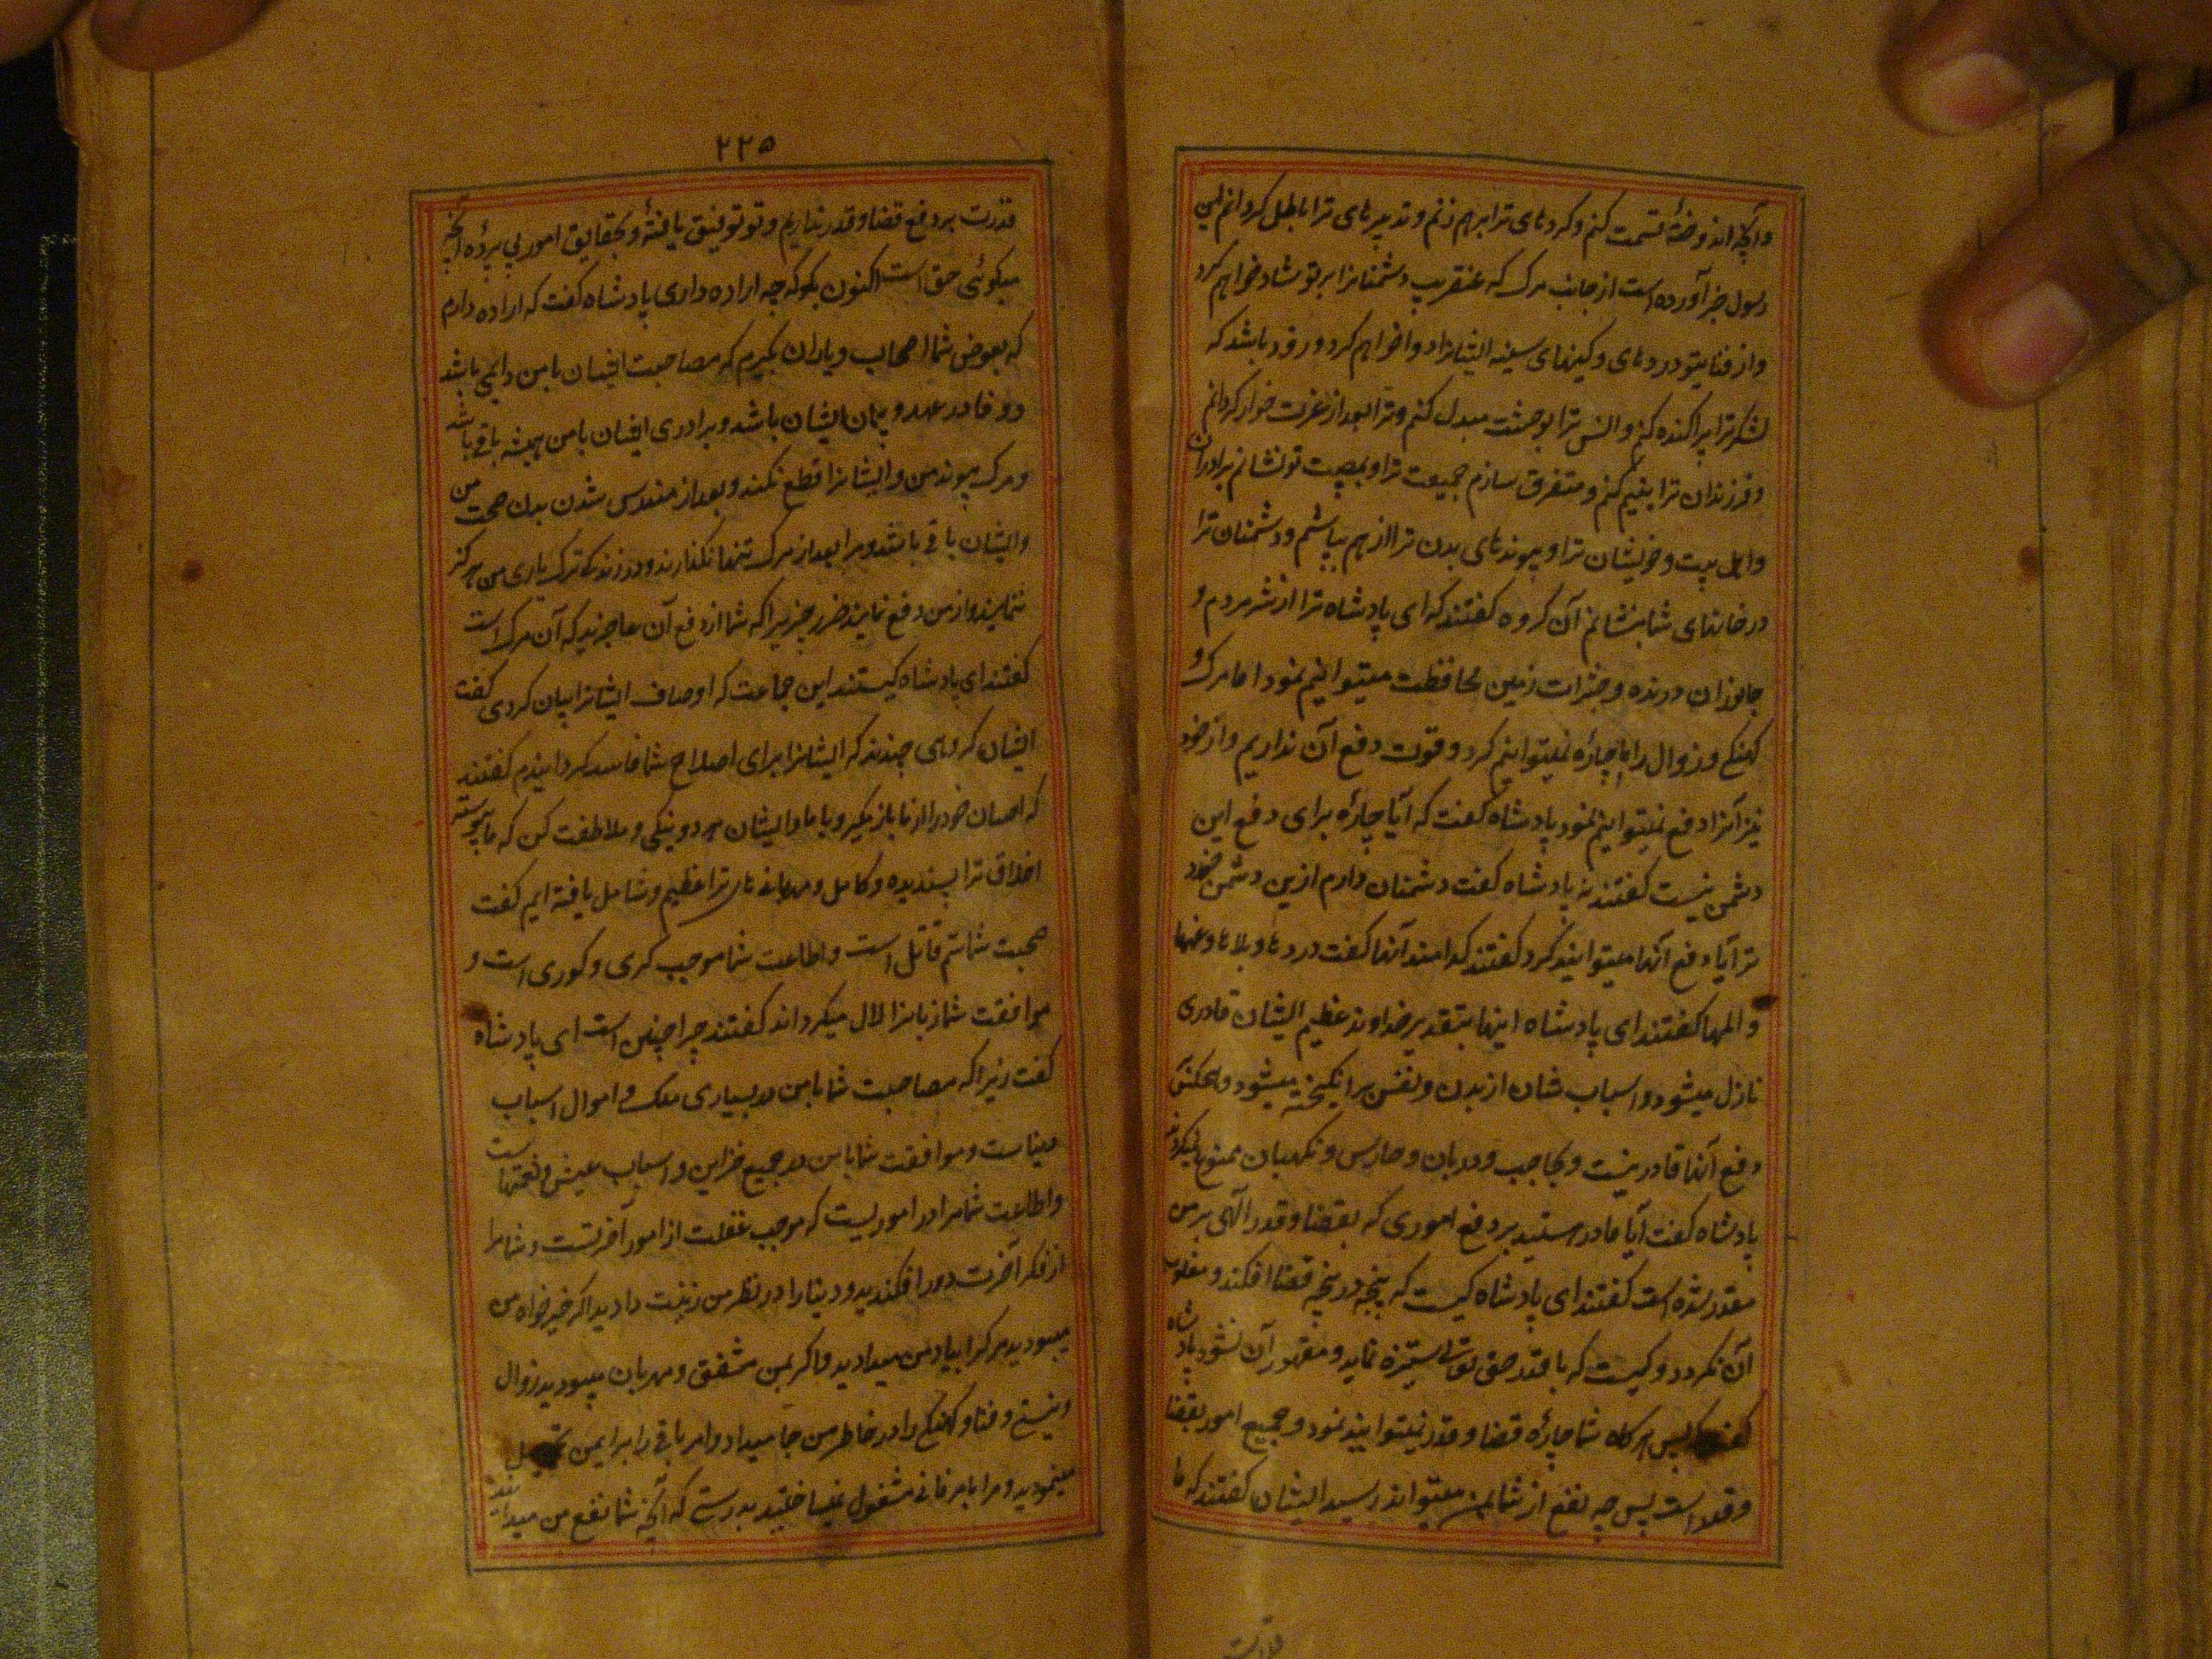 وآنچه اندوختهٔ قسمت کنم و کردهای ترا برهم زنم و تدبیرهای ترا باطل کردانم این
رسول خبر آورده است از جانب مرک که عنقریب دشمنانرا بر تو شاد خواهم کرد
و از فنای تو دردهای و کینهای سینه ایشانرا دوا خواهم کرد و زود باشد که
لشکر ترا پراکنده کنم و انس ترا بوحشت مبدل کنم و ترا بعد از عزت خوار کردانم
و فرزندان ترا یتیم کنم و متفرق سازم جمیعت ترا و بمصیبت تو نشانم برادران
و اهل بیت و خویشان ترا و پیوندهای بدن ترا از هم بپاشم و دشمنان ترا
در خانهای شما بنشانم آن کروه کفتند که ای پادشاه ترا از شر مردم و
جانوران درنده و حشرات زمین محافظت میتوانیم نمود اما مرک و
کهنکی و زوال را ما چارهٔ نمیتوانیم کرد و قوت دفع آن نداریم و از خود
نیز آنرا دفع نمیتوانیم نمود پادشاه کفت که آیا چارهٔ برای دفع این
دشمن نیست کفتند نه پادشاه کفت دشمنان دارم ازین دشمن خرد
تر آیا دفع آنها میتوانید کرد کفتند کدامند آنها کفت دردها و بلاها و غمها
و المها کفتند ای پادشاه اینها بتقدیر خداوند عظیم الشان قادری
نازل میشود و اسباب شان از بدن و نفس برانکیخته میشود و هیچکس
دفع آنها قادر نیست و بحاجب و دربان و حارس و نکهبان ممنوع نمیکردند
پادشاه کفت آیا قادر هستید بر دفع اموری که بقضا و قدر الهی بر من
مقدر شده است کفتند ای پادشاه کیست که پنجه در پنجه قضا افکند و مغلوب
آن نکردد و کیست که با قدر حق تعالی ستیزه نماید و مقهور آن نشود پادشاه
کفت پس هرکاه شما چارهٔ قضا و قدر نمیتوانید نمود و جمیع امور بقضا
و قدر است پس چه نفع از شما بمن میتواند رسید ایشان کفتند که ما
قدرت
۲۲۵
قدرت بر دفع قضا و قدر نداریم و تو توفیق یافتهٔ و بحقایق امور پی بردهٔ آنچه
میکوئی حق است اکنون بکو که چه اراده داری پادشاه کفت که اراده دارم
که بعوض شما اصحاب و یاران بکیرم که مصاحبت ایشان با من دایمی باشد
و وفا در عهد و پیمان ایشان باشد و برادری ایشان با من همیشه باقی باشد
و مرک پیوند من و ایشانرا قطع نکند و بعد از مندرس شدن بدن صحبت من
و ایشان باقی باشد و مرا بعد از مرک تنها نکذارند و در زندکی ترک یاری من هرکز
ننمایند و از من دفع نمایند ضرر چیزیرا که شما از دفع آن عاجزید که آن مرک است
کفتند ای پادشاه کیستند این جماعت که اوصاف ایشانرا بیان کردی کفت
ایشان کروهی چندند که ایشانرا برای اصلاح شما فاسد کردانیدم کفتند
که احسان خود را از ما باز مکیر و با ما و ایشان هر دو نیکی و ملاطفت کن که ما پیوسته
اخلاق ترا پسندیده و کامل و مهربانیهای ترا عظیم و شامل یافته ایم کفت
صحبت شما سم قاتل است و اطاعت شما موجب کری و کوری است و
موافقت شما زبانرا لال میکرداند کفتند چرا چنین است ای پادشاه
کفت زیرا که مصاحبت شما با من در بسیاری ملک و اموال و اسباب
دنیاست و موافقت شما با من در جمیع خزاین و اسباب عیش و نعمتها است
و اطاعت شما مرا در اموریست که موجب غفلت از امور آخرتست و شما مرا
از فکر آخرت دور افکندید و دنیا را در نظر من زینت دادید اکر خیرخواه من
میبودید مرک را بیاد من میدادید و اکر بمن مشفق و مهربان میبودید زوال
و نیستی و فنا و کهنکی را در خاطر من جا میداد و امر باقی را برای من تحصیل
مینمودید و مرا بامر فانی مشغول نمیساختید بدرستی که آنچه شما نفع من میدانید